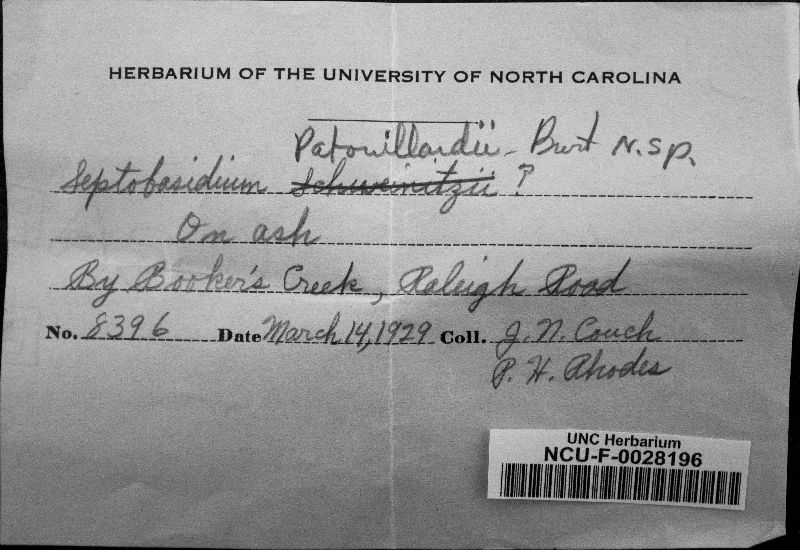 HERBARIUM OF THE UNIVERSITY OF NORTH CAROLINA
Patouillardii - Burt N. Sp.
Septobasidium Schweinitzii ?
On ash
By Booker's Creek, Raleigh Road
No. 8396 Date March 14, 1929 Coll. J. N. Couch
P. H. Rhodes
UNC Herbarium
NCU-F-0028196